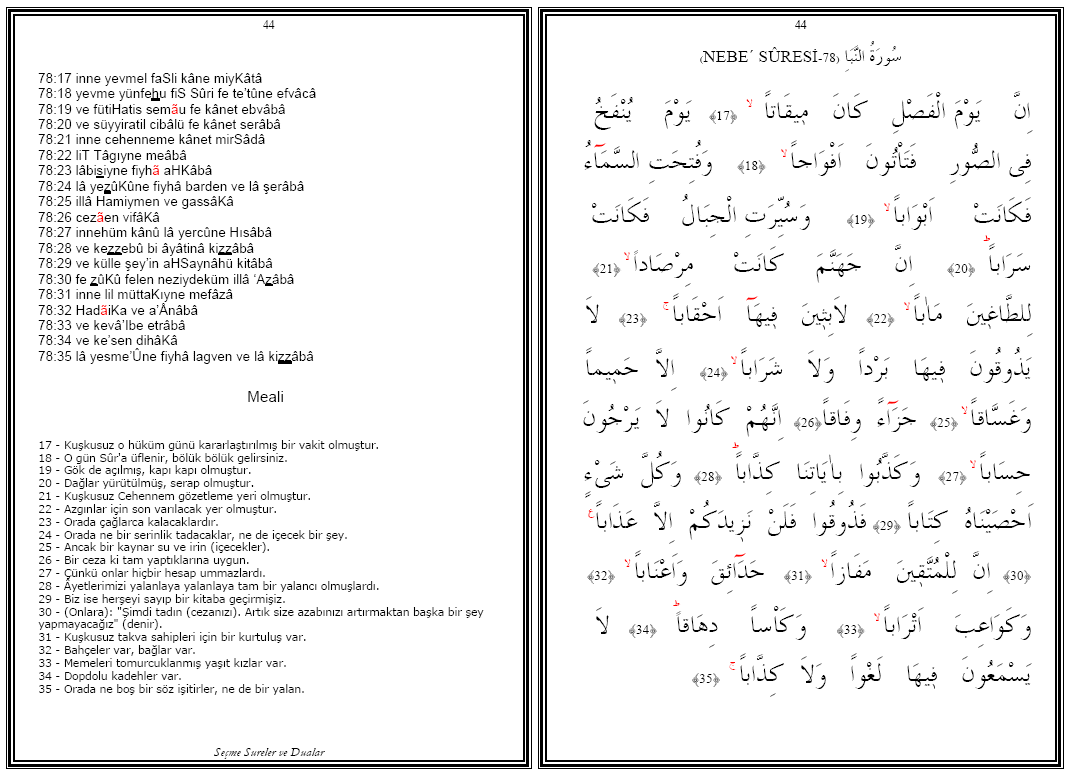 44
78:17 inne yevmel faSli kâne miyKâtâ
78:18 yevme yünfehu fiS Sûri fe te'tûne efvâcâ
78:19 ve fütiHatis semãu fe kânet ebvâbâ
78:20 ve süyyiratil cibâlü fe kânet serâbâ
78:21 inne cehenneme kânet mirSâdâ
78:22 liT Tâgıyne meâbâ
78:23 lâbisiyne fiyhã aHKâbâ
78:24 lâ yezûKûne fiyhâ barden ve lâ şerâbâ
78:25 illâ Hamiymen ve gassâKâ
78:26 cezãen vifâKâ
78:27 innehüm kânû lâ yercûne Hısâbâ
78:28 ve kezzebû bi âyâtinâ kizzâbâ
78:29 ve külle şey'in aHSaynâhü kitâbâ
78:30 fe zûKû felen neziydeküm illâ ‘Azâbâ
78:31 inne lil müttaKıyne mefâzâ
78:32 HadãiKa ve a'Ânâbâ
78:33 ve kevâ'Ibe etrâbâ
78:34 ve ke'sen dihâKâ
78:35 lâ yesme'Ûne fiyhâ lagven ve lâ kizzâbâ
Meali
17 - Kuşkusuz o hüküm günü kararlaştırılmış bir vakit olmuştur.
18 - O gün Sûr'a üflenir, bölük bölük gelirsiniz.
19 - Gök de açılmış, kapı kapı olmuştur.
20 - Dağlar yürütülmüş, serap olmuştur.
21 - Kuşkusuz Cehennem gözetleme yeri olmuştur.
22 - Azgınlar için son varılacak yer olmuştur.
23 - Orada çağlarca kalacaklardır.
24 - Orada ne bir serinlik tadacaklar, ne de içecek bir şey.
25 - Ancak bir kaynar su ve irin (içecekler).
26 - Bir ceza ki tam yaptıklarına uygun.
27 - Çünkü onlar hiçbir hesap ummazlardı.
28 - Âyetlerimizi yalanlaya yalanlaya tam bir yalancı olmuşlardı.
29 - Biz ise herşeyi sayıp bir kitaba geçirmişiz.
30 - (Onlara): "Şimdi tadın (cezanızı). Artık size azabınızı artırmaktan başka bir şey
yapmayacağız" (denir).
31 - Kuşkusuz takva sahipleri için bir kurtuluş var.
32 - Bahçeler var, bağlar var.
33 - Memeleri tomurcuklanmış yaşıt kızlar var.
34 - Dopdolu kadehler var.
35 - Orada ne boş bir söz işitirler, ne de bir yalan.
Seçme Sureler ve Dualar
44
سُورَةُ النَّبَاِ (NEBE´ SÛRESİ-78)
اِنَّ يَوْمَ الْفَصْلِ كَانَ مٖيقَاتاًۙ ﴿17﴾ يَوْمَ يُنْفَخُ
فِى الصُّورِ فَتَأْتُونَ اَفْوَاجاًۙ ﴿18﴾ وَفُتِحَتِ السَّمَٓاءُ
فَكَانَتْ اَبْوَاباًۙ ﴿19﴾ وَسُيِّرَتِ الْجِبَالُ فَكَانَتْ
سَرَاباًؕ ﴿20﴾ اِنَّ جَهَنَّمَ كَانَتْ مِرْصَاداًۙ ﴿21﴾
لِلطَّاغٖينَ مَاٰباًۙ ﴿22﴾ لاَبِثٖينَ فٖيهَٓا اَحْقَاباًۚ ﴿23﴾ لاَ
يَذُوقُونَ فٖيهَا بَرْداً وَلاَ شَرَاباًۙ ﴿24﴾ اِلاَّ حَمٖيماً
وَغَسَّاقاًۙ ﴿25﴾ جَزَٓاءً وِفَاقاً ﴿26﴾ اِنَّهُمْ كَانُوا لاَ يَرْجُونَ
حِسَاباًۙ ﴿27﴾ وَكَذَّبُوا بِاٰيَاتِنَا كِذَّاباًؕ ﴿28﴾ وَكُلَّ شَیْءٍ
اَحْصَيْنَاهُ كِتَاباً ﴿29﴾ فَذُوقُوا فَلَنْ نَزٖيدَكُمْ اِلاَّ عَذَاباً ع
﴿30﴾ اِنَّ لِلْمُتَّقٖينَ مَفَازاًۙ ﴿31﴾ حَدَٓائِقَ وَاَعْنَاباًۙ ﴿32﴾
وَكَوَاعِبَ اَتْرَاباًۙ ﴿33﴾ وَكَأْساً دِهَاقاًؕ ﴿34﴾ لاَ
يَسْمَعُونَ فٖيهَا لَغْواً وَلاَ كِذَّاباًۚ ﴿35﴾